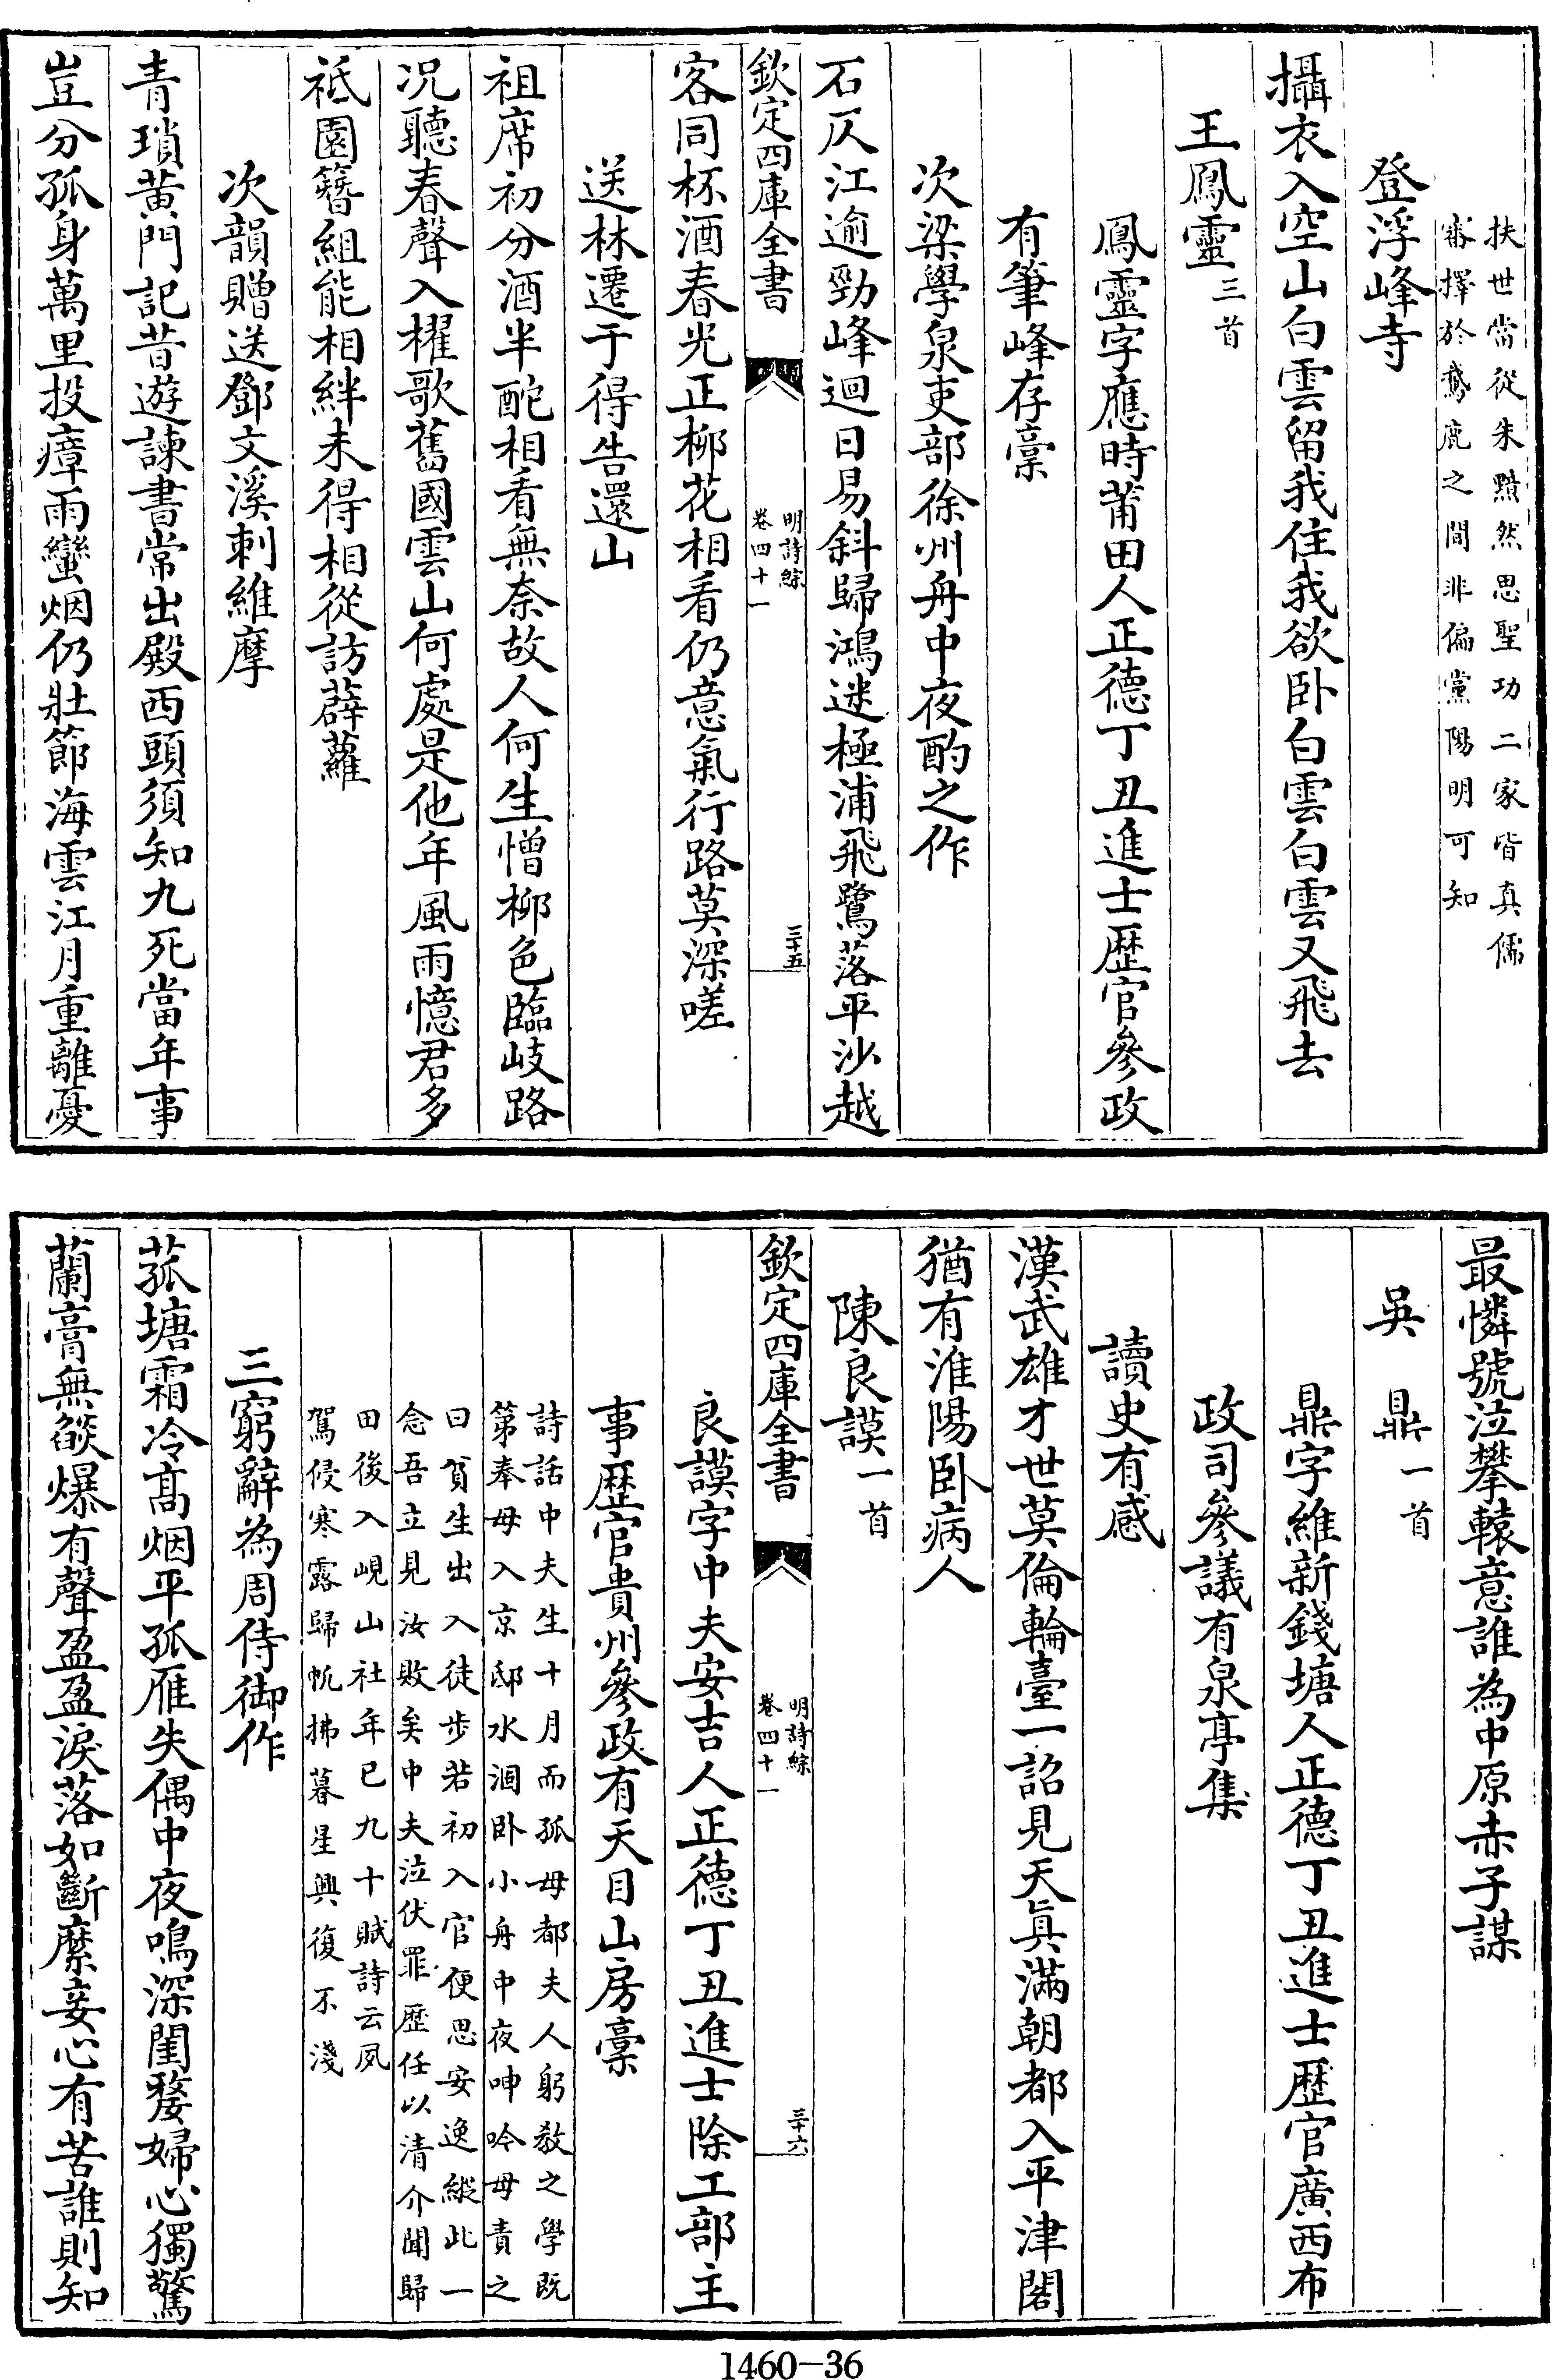 扶世嘗從朱黯然思聖功二家皆真儒
審擇於鵞鹿之間非偏黨陽明可知
登浮峰寺
攝衣入空山白雲留我住我欲卧白雲白雲又飛去
王鳳靈三首
鳳靈字應時莆田人正德丁丑進士歴官參政
有筆峰存稾
次梁學泉吏部徐州舟中夜酌之作
石仄江逾勁峰迴日易斜歸鴻迷極浦飛鷺落平沙越
欽定四庫全書
明詩綜
卷四十一
三十五
客同杯酒春光正柳花相看仍意氣行路莫深嗟
送林遷于得告還山
祖席初分酒半酡相看無奈故人何生憎柳色臨岐路
况聽春聲入櫂歌舊國雲山何處是他年風雨憶君多
祗園簪組能相絆未得相從訪薜蘿
次韻贈送鄧文溪刺維摩
青瑣黄門記昔遊諫書常出殿西頭須知九死當年事
豈分孤身萬里投瘴雨蠻烟仍壯節海雲江月重離憂
最憐號泣攀轅意誰為中原赤子謀
吳鼎一首
鼎字維新錢塘人正德丁丑進士歴官廣西布
政司參議有泉亭集
讀史有感
漢武雄才世莫倫輪臺一詔見天真滿朝都入平津閣
猶有淮陽卧病人
陳良謨一首
欽定四庫全書
明詩綜
卷四十一
三十六
良謨字中夫安吉人正德丁丑進士除工部主
事歴官貴州參政有天目山房稾
詩話中夫生十月而孤母都夫人躬教之學既
第奉母入京邸水涸卧小舟中夜呻吟母責之
曰貧生出入徒步若初入官便思安逸縱此一
念吾立見汝敗矣中夫泣伏罪歴任以清介聞歸
田後入峴山社年已九十賦詩云夙
駕侵寒露歸帆拂暮星興復不淺
三窮辭為周侍御作
菰塘霜冷髙烟平孤雁失偶中夜鳴深閨嫠婦心獨驚
蘭膏無燄爆有聲盈盈淚落如斷縻妾心有苦誰則知
1460-36